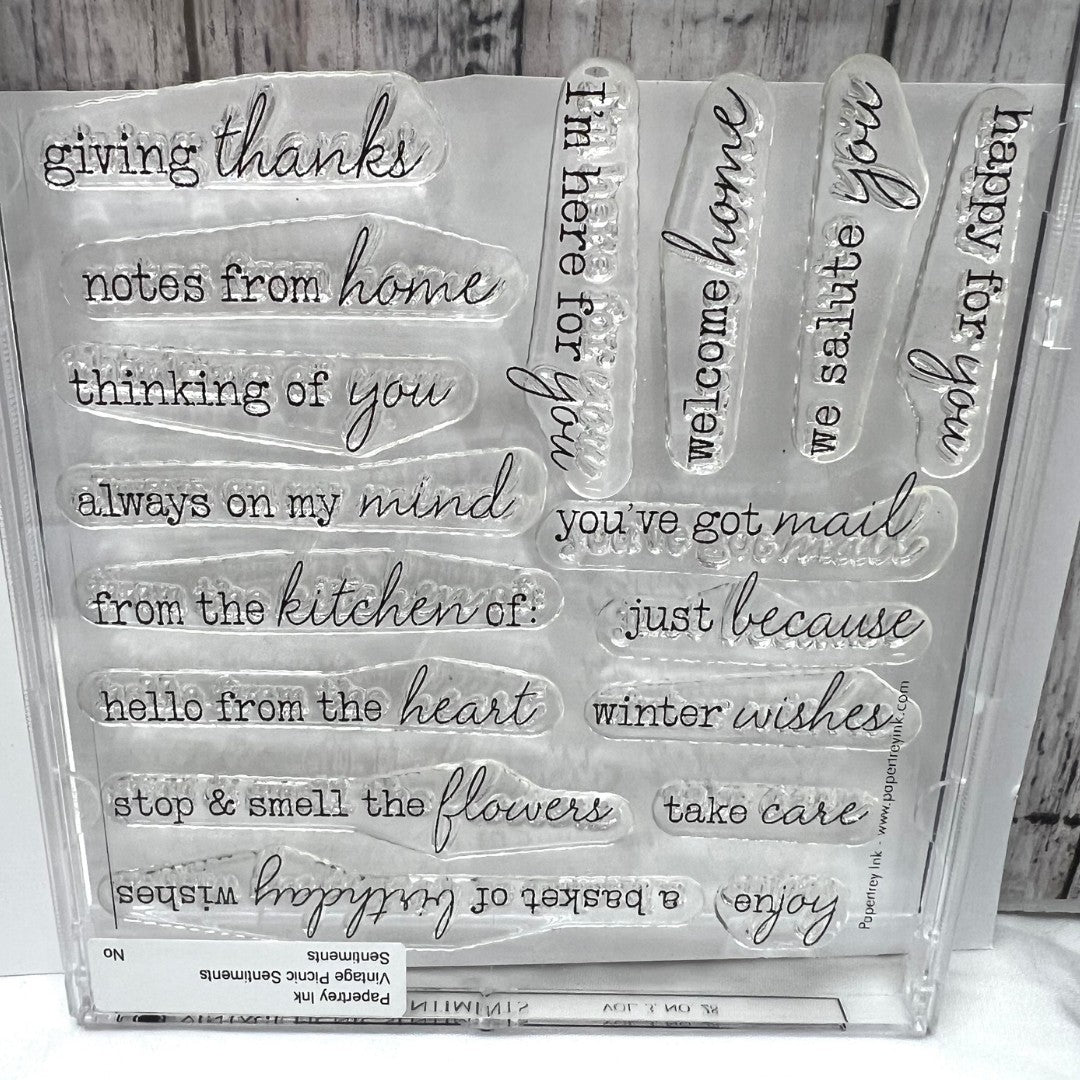 giving thanks
notes from home
thinking of you
always on my mind
from the kitchen of:
hello from the heart
stop & smell the flowers
a basket of birthday wishes
I'm here for you
welcome home
we salute you
happy for you
you've got mail
just because
winter wishes
take care
enjoy
Papertrey Ink - www.papertreyink.com
Papertrey Ink
Vintage Picnic Sentiments
Sentiments
No
VOL. 3, NO. 28